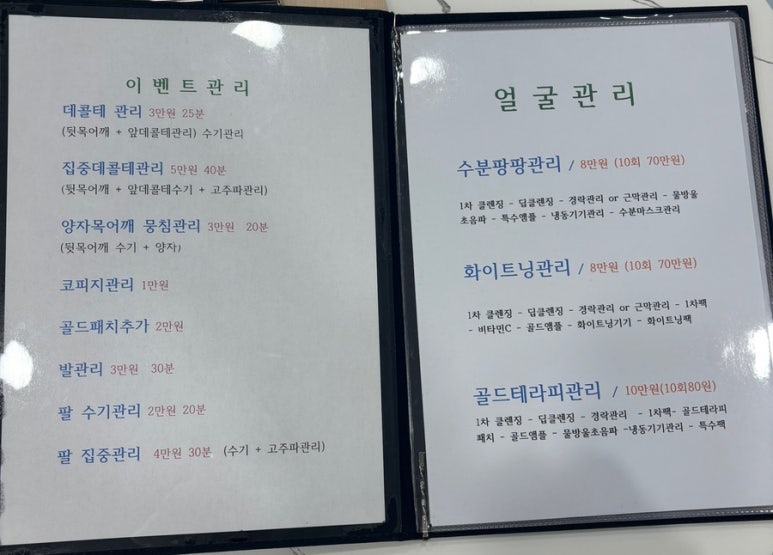 이벤트관리
데콜테 관리 3만원 25분
(뒷목어깨 + 앞데콜테관리) 수기관리
집중데콜테관리 5만원 40분
(뒷목어깨 + 앞데콜테수기 + 고주파관리)
양자목어깨 뭉침관리 3만원 20분
(뒷목어깨 수기 + 양자)
코피지관리 1만원
골드패치추가 2만원
발관리 3만원 30분
팔 수기관리 2만원 20분
팔 집중관리 4만원 30분 (수기 + 고주파관리)
얼굴관리
수분팡팡관리 / 8만원 (10회 70만원)
1차 클렌징 - 딥클렌징 - 경락관리 or 근막관리 - 물방울
초음파 - 특수앰플 - 냉동기기관리 - 수분마스크관리
화이트닝관리 / 8만원 (10회 70만원)
1차 클렌징 - 딥클렌징 - 경락관리 or 근막관리 - 1차팩
- 비타민C - 골드앰플 - 화이트닝기기 - 화이트닝팩
골드테라피관리 / 10만원(10회80원)
1차 클렌징 - 딥클렌징 - 경락관리 - 1차팩- 골드테라피
패치 - 골드앰플 - 물방울초음파 -냉동기기관리 - 특수팩